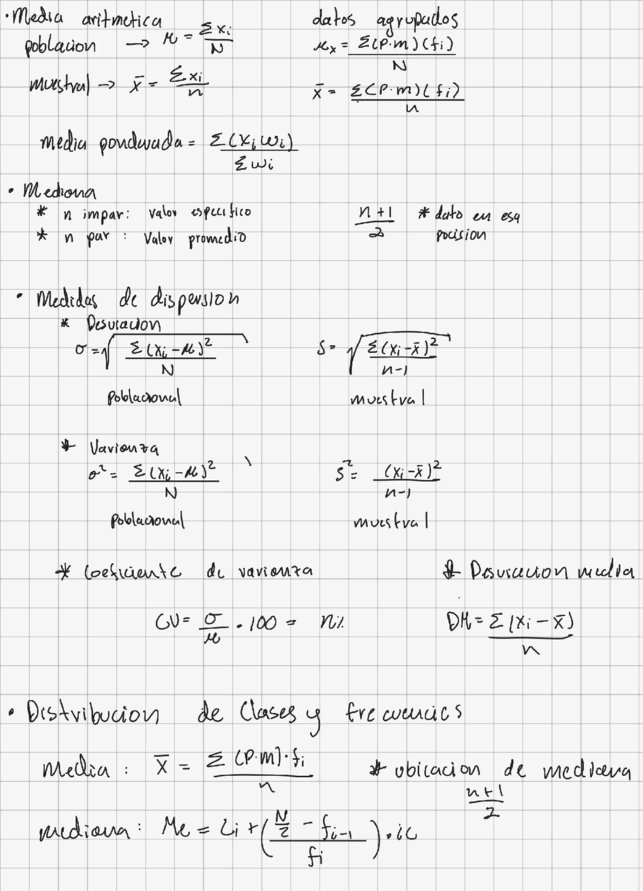 • Media aritmetica
poblacion → μ = Σxi/N
muestral → x̄ = Σxi/n
datos agrupados
μx = Σ(P·m)(fi)/N
x̄ = Σ(P·m)(fi)/n
media ponderada = Σ(xi wi)/Σwi
• Mediana
* n impar: valor especifico
* n par : Valor promedio
n+1/2 * dato en esa
pocision
• Medidas de dispersion
* Desviacion
σ = √(Σ(xi-μ)²/N)
poblacional
S = √(Σ(xi-x̄)²/n-1)
muestral
* Varianza
σ² = Σ(xi-μ)²/N
poblacional
S² = (xi-x̄)²/n-1
muestral
* Coeficiente de varianza
CV = σ/μ · 100 = n%
* Desviacion media
DM = Σ(xi-x̄)/n
• Distribucion de Clases y frecuencics
Media : x̄ = Σ(P·m)·fi/n
* ubicacion de mediana
n+1/2
mediana : Me = Li + (N/2 - fi-1/fi) · ic